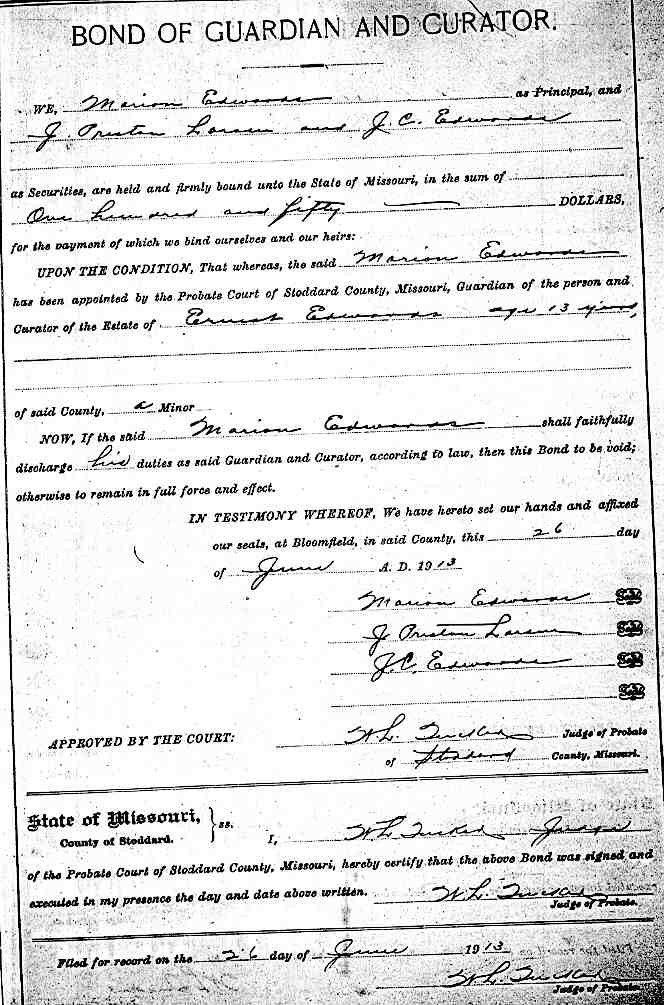 BOND OF GUARDIAN AND CURATOR.
WE, Marion Edwards as Principal, and
J. Preston Larsen and J.C. Edwards
as Securities, are held and firmly bound unto the State of Missouri, in the sum of
One hundred and fifty DOLLARS,
for the payment of which we bind ourselves and our heirs:
UPON THE CONDITION, That whereas, the said Marion Edwards
has been appointed by the Probate Court of Stoddard County, Missouri, Guardian of the person and
Curator of the Estate of Ernest Edwards age 13 years,
of said County, a Minor
NOW, If the said Marion Edwards shall faithfully
discharge his duties as said Guardian and Curator, according to law, then this Bond to be void;
otherwise to remain in full force and effect.
IN TESTIMONY WHEREOF, We have hereto set our hands and affixed
our seals, at Bloomfield, in said County, this 26 day
of June A. D. 1913
Marion Edwards Seal
J Preston Larsen Seal
J.C. Edwards Seal
Seal
APPROVED BY THE COURT: W.L. Tucker Judge of Probate
of Stoddard County, Missouri.
State of Missouri, } ss.
County of Stoddard. I, W L Tucker Judge
of the Probate Court of Stoddard County, Missouri, hereby certify that the above Bond was signed and
executed in my presence the day and date above written. W L Tucker
Judge of Probate.
Filed for record on the 26 day of June 1913
W L Tucker
Judge of Probate.